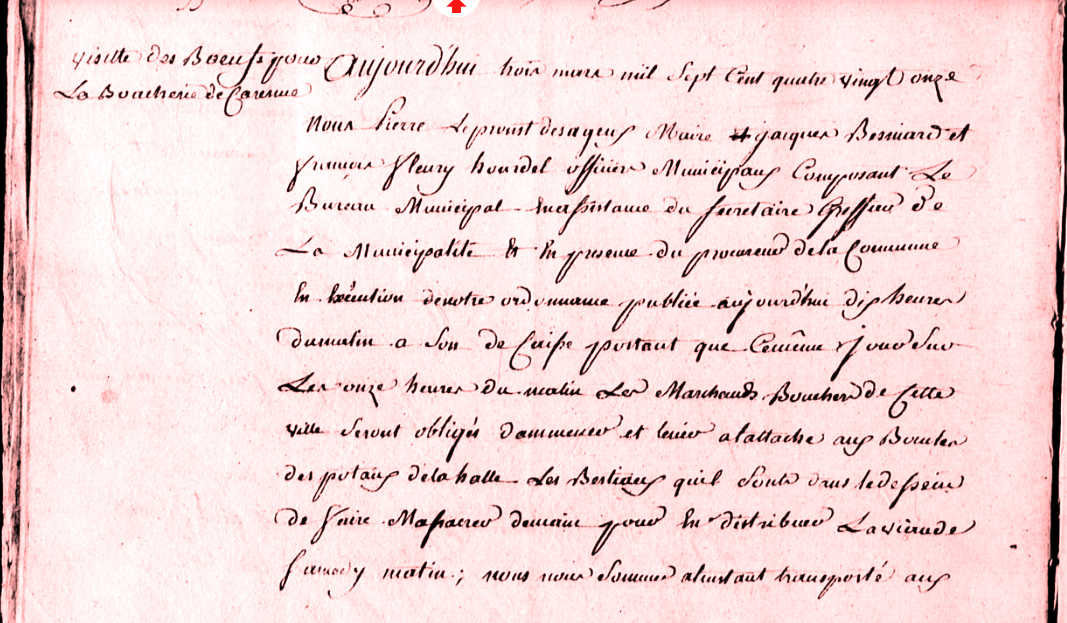 visitte des Bœufs pour
La Boucherie de Caresme
Aujourd'hui trois mars mil sept Cent quatre vingt onze
Nous Pierre Leprovist desageux Maire & jacques Besniard et
françois fleury hourdel officiers Municipaux Composant Le
Bureau Municipal En assistance du secretaire Greffier de
La Municipalité Et En presence du procureur dela Commune
En Execution denotre ordonnance publiée aujourd'hui dix heures
dumatin a son de Caisse portant que Cemême jour sur
Les onze heures du matin Les Marchands Bouchers de Cette
ville seront obligés d'ammener et tenir alattache aux Boucles
des potaux dela halle Les Bestiaux quil sonts dans ledessein
de faire Massacrer demain pour En distribuer La viande
samedy matin ; nous nous sommes alinstant transporté aux